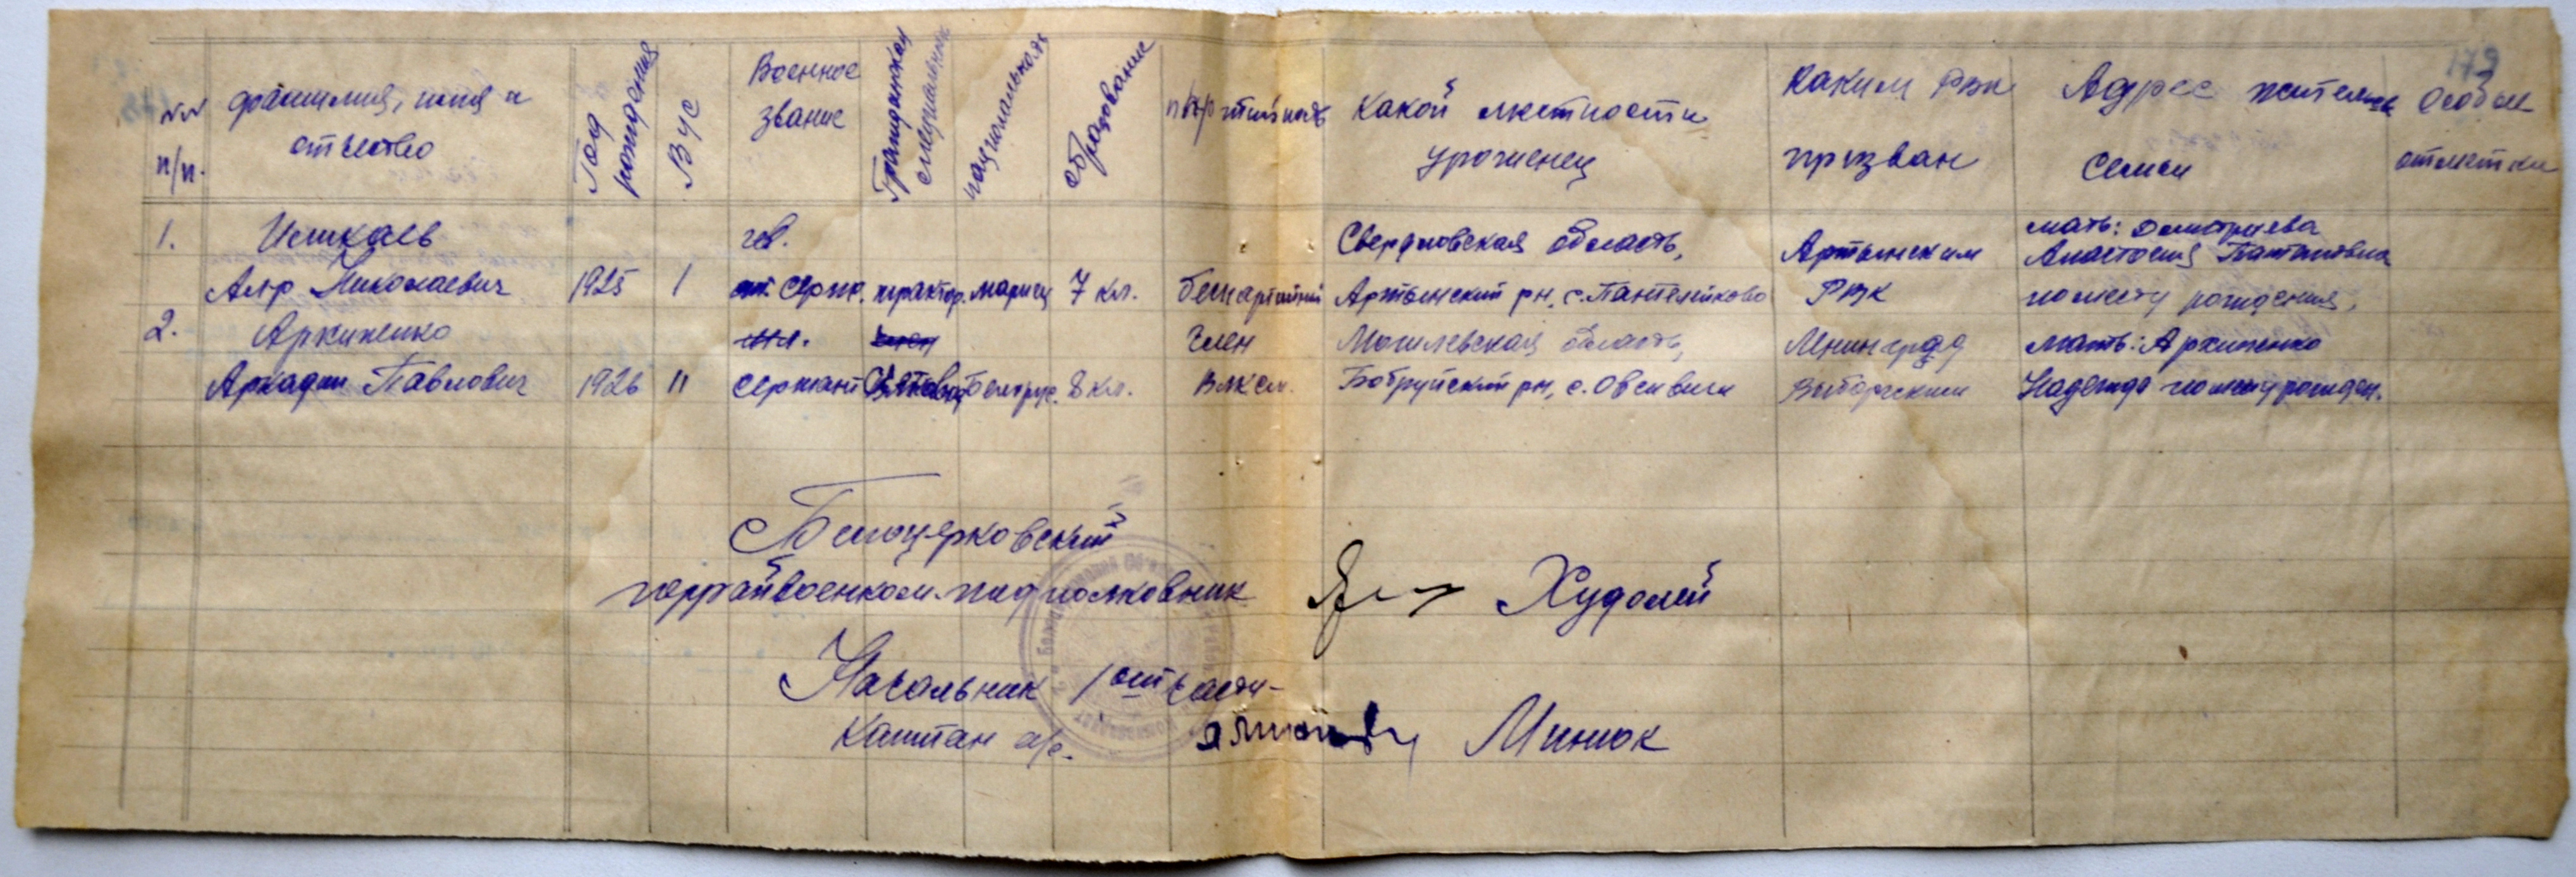 179
№№ п/п.
фамилия, имя и отчество
Год рождения
ВУС
Военное звание
Гражданская специальность
национальность
образование
партийность
какой местности уроженец
Каким РВК призван
Адрес жительств семьи
Особые отметки
1. Ишкаев гв. Свердловская область, мать: Дмитриева
Ал-р Николаевич 1925 1 серж. трактор. мариец 7 кл. беспартийный Артынский рн, с. Пантелейково Артынским РВК Анастасия
по месту рождения,
2. Архипенко мл. член Могилевская область, Ленинград мать: Архипенко
Аркадий Павлович 1926 11 сержант белорус. 8 кл. ВЛКСМ. Бобруйский рн, с. Выборгским Надежда по месту рожден.
Белоцерковский
горрайвоенком-подполковник Худолей
Начальник 1 отчасти-
Капитан а/с. Минюк